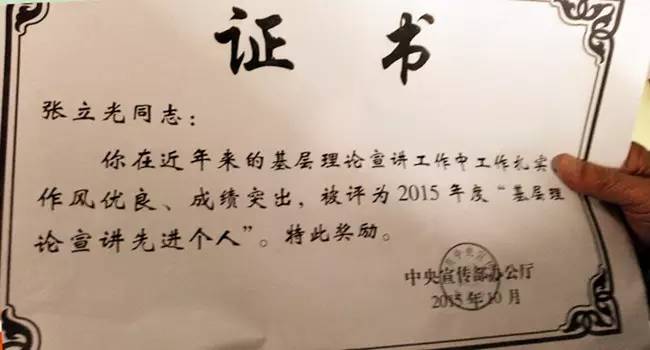 证书
张立光同志：
你在近年来的基层理论宣讲工作中工作扎实
作风优良、成绩突出，被评为2015年度“基层理
论宣讲先进个人”。特此奖励。
中央宣传部办公厅
2015年10月